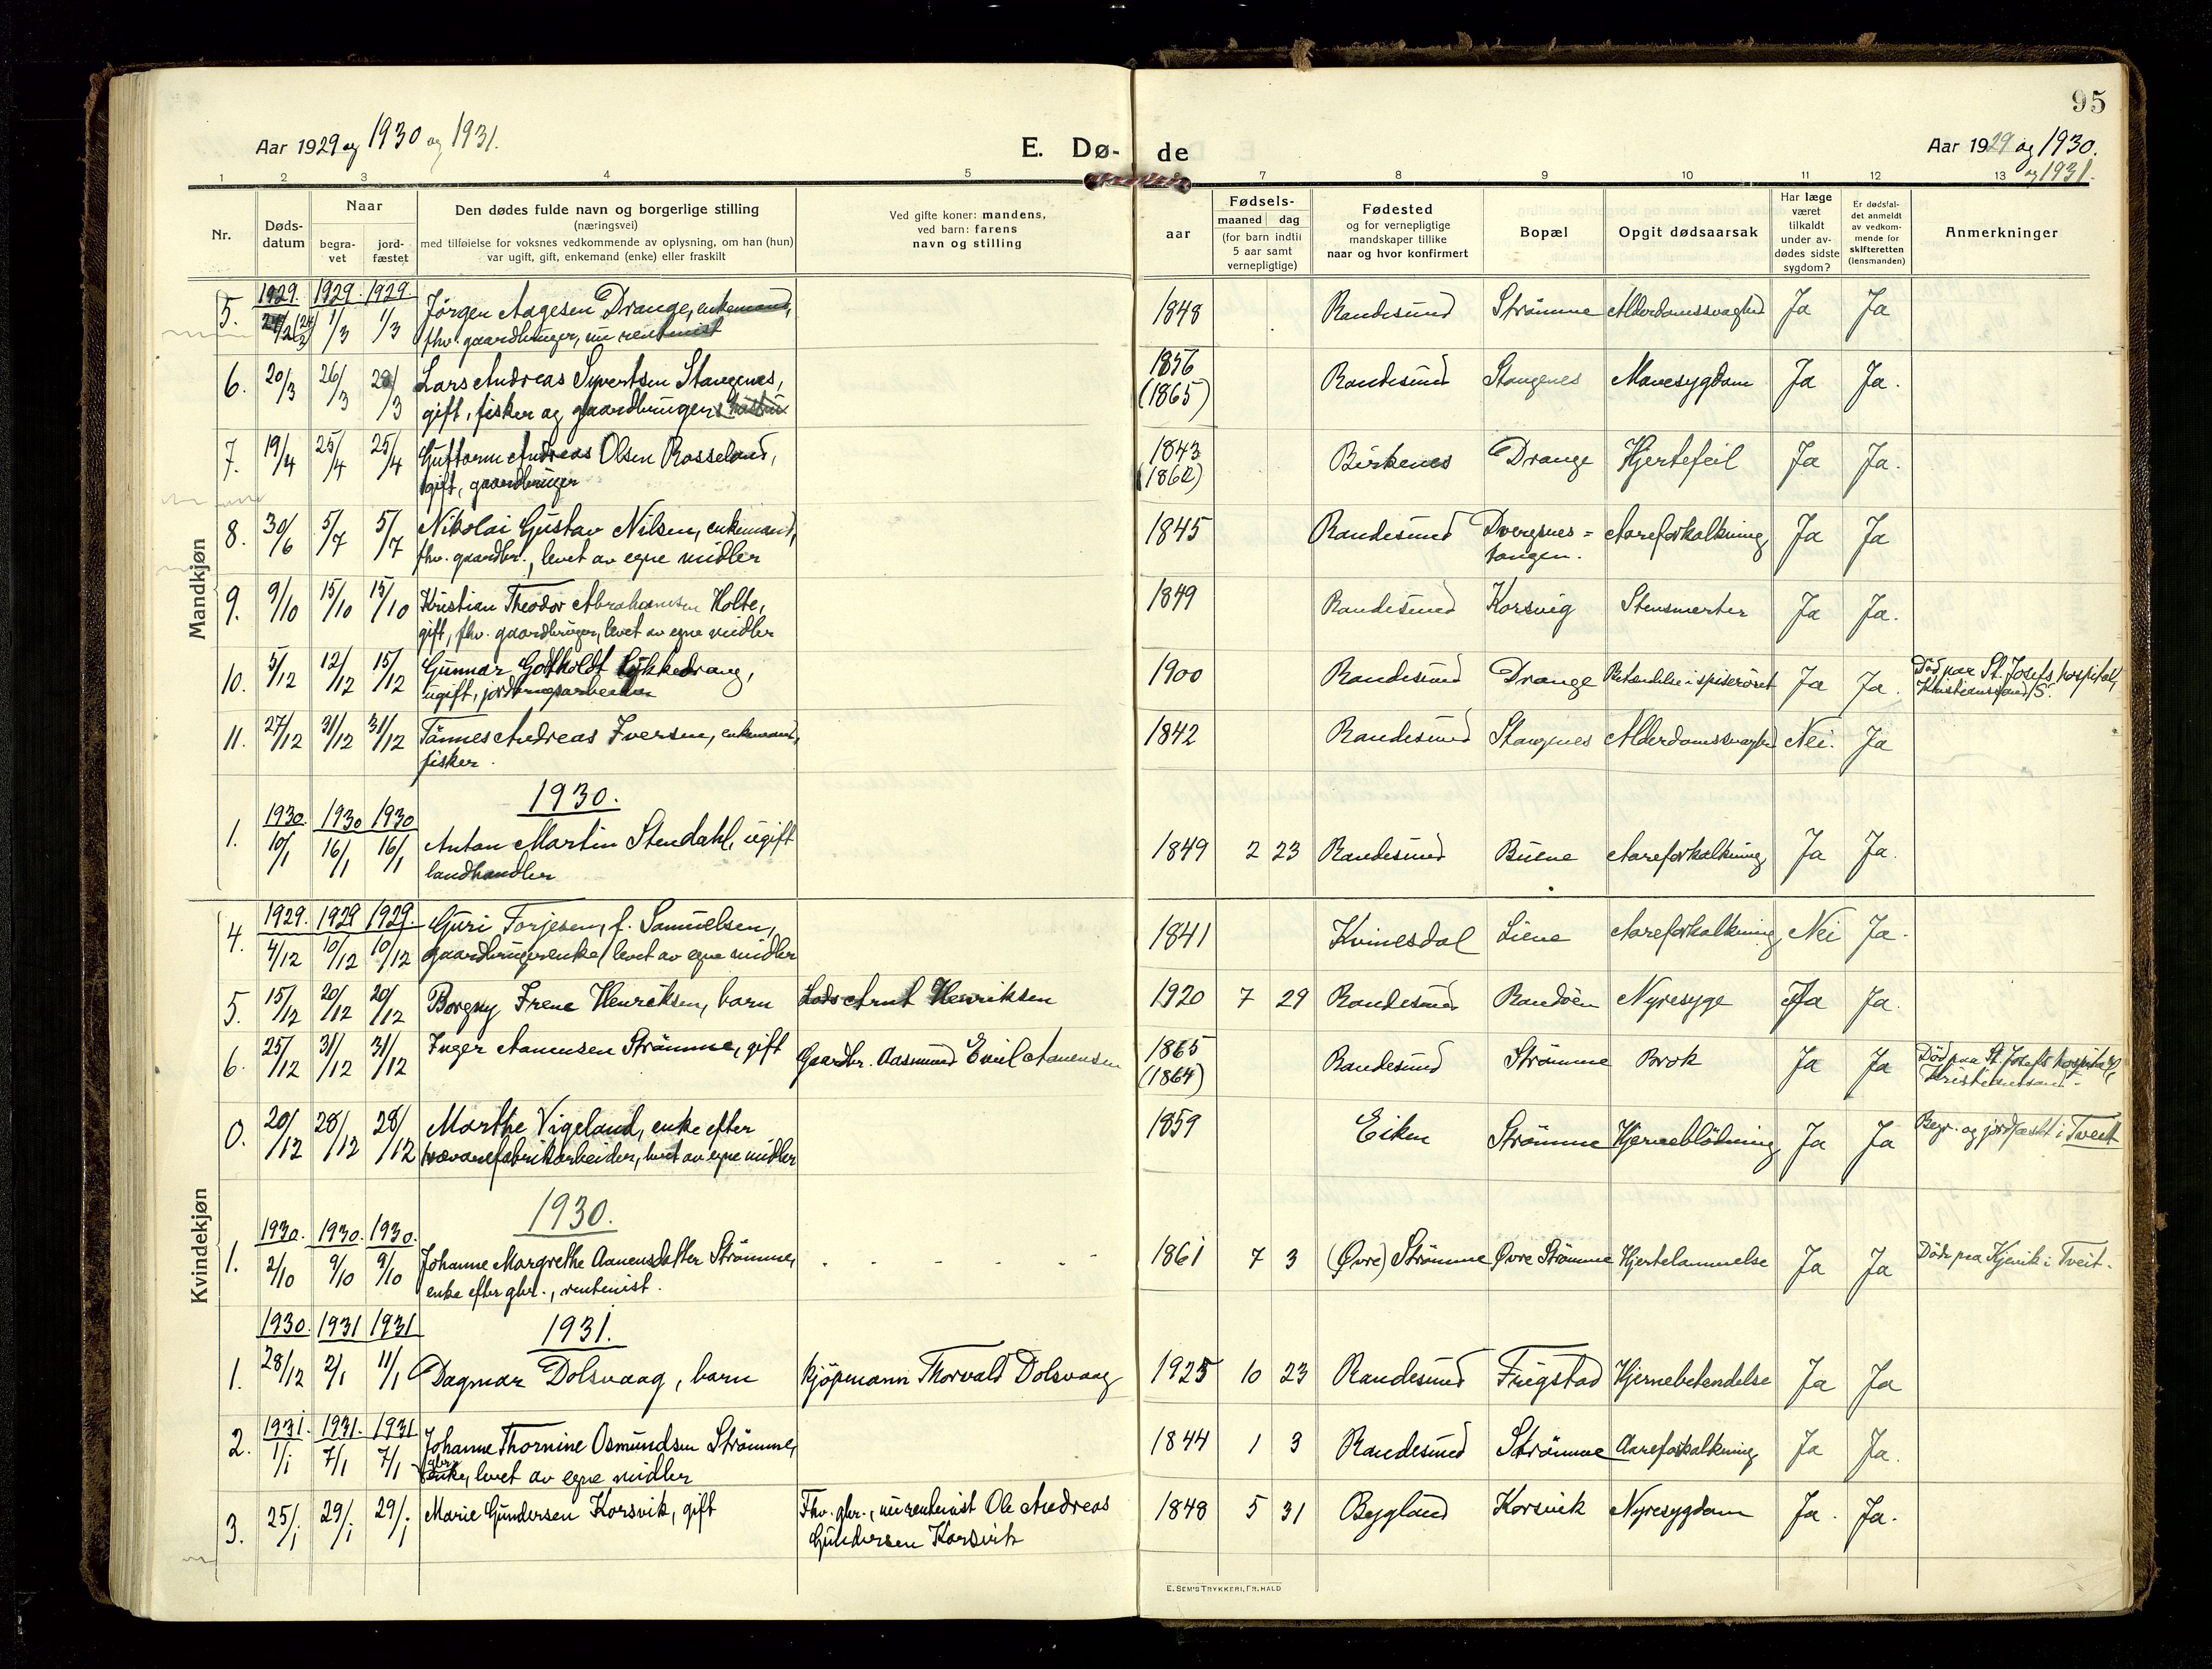 95
Aar 1929 og 1930 og 1931.
E. Dø- de
Aar 1929 og 1930.
og 1931.
1 2 3 4 5 7 8 9 10 11 12 13
Nr.
Døds-
datum
Naar
begra-
vet
jord-
fæstet
Den dødes fulde navn og borgerlige stilling
(næringsvei)
med tilføielse for voksnes vedkommende av oplysning, om han (hun)
var ugift, gift, enkemand (enke) eller fraskilt
Ved gifte koner: mandens,
ved barn: farens
navn og stilling
aar
Fødsels-
maaned dag
(for barn indtil
5 aar samt
vernepligtige)
Fødested
og for vernepligtige
mandskaper tillike
naar og hvor konfirmert
Bopæl
Opgit dødsaarsak
Har læge
været
tilkaldt
under av-
dødes sidste
sygdom?
Er dødsfal-
det anmeldt
av vedkom-
mende for
skifteretten
(lensmanden)
Anmerkninger
Mandkjøn
1929. 1929. 1929.
5. 1/3 1/3 Jørgen Aagesen Drange, enkemand, 1848 Randesund Strømme Alderdomssvaghed Ja Ja
fhv. gaardbruger, nu rentenist
6. 20/3 26/3 Lars Andreas Syvertsen Stangenes, 1856 (1865) Randesund Stangenes Mavesygdom Ja Ja.
gift, fisker og gaardbruger
7. 19/4 25/4 25/4 Guttorm Andreas Olsen Rosseland, 1843 (1862) Birkenes Drange Hjertefeil Ja Ja.
gift, gaardbruger
8. 30/6 5/7 5/7 Nikolai Gustav Nilsen, enkemand, 1845 Randesund Dvergnes= Aareforkalkning Ja Ja
fhv. gaardbr., levet av egne midler tangen.
9. 9/10 15/10 15/10 Kristian Theodor Abrahamsen Holte, 1849 Randesund Korsvig Stensmerter Ja Ja.
gift, fhv. gaardbruger, levet av egne midler
10. 5/12 12/12 15/12 Gunnar Godtholdt Lykkedrang, 1900 Randesund Drange Betændelse i spiserøret Ja Ja. Død paa St. Josefs hospital,
ugift, Kristianssand S.
11. 27/12 31/12 31/12 Tønnes Andreas Iversen, enkemand, 1842 Randesund Stangenes Alderdomssvaghed Nei. Ja
fisker.
1930.
1930. 1930 1930
1. 10/1 16/1 16/1 Anton Martin Stendahl, ugift 1849 2 23 Randesund Buene Aareforkalkning Ja Ja.
landhandler
Kvindekjøn
1929. 1929 1929.
4. 4/12 10/12 10/12 Guri Torjesen, f. Samuelsen, 1841 Kvinesdal Liene Aareforkalkning Nei Ja.
gaardbrugerenke, levet av egne midler
5. 15/12 20/12 20/12 Borgny Irene Henriksen, barn Lods Arnt Henriksen 1920 7 29 Randesund Randøen Nyresyge Ja Ja.
6. 25/12 31/12 31/12 Inger Aanensen Strømme, gift Gaardbr. Aasmund Emil Aanensen 1865 (1864) Randesund Strømme Brok Ja Ja Død paa St. Josefs hospital,
Kristianssand.
0. 20/12 28/12 28/12 Marthe Vigeland, enke efter 1859 Eiken Strømme Hjerneblødning Ja Ja Begr. og jordfæstet i Tveit
trævarefabrikarbeider, levet av egne midler
1930.
1930. 1930. 1930.
1. 2/10 9/10 9/10 Johanne Margrethe Aanensdatter Strømme, 1861 7 3 (Øvre) Strømme Øvre Strømme Hjertelammelse Ja Ja Døde paa Kjevik i Tveit.
enke efter gbr., rentenist.
1931.
1930. 1931 1931
1. 28/12 2/1 11/1 Dagmar Dolsvaag, barn Kjøpmann Thorvald Dolsvaag 1925 10 23 Randesund Frigstad Hjernebetendelse Ja Ja
1931. 1931. 1931
2. 1/1 7/1 7/1 Johanne Thornine Osmundsen Strømme, 1844 1 3 Randesund Strømme Aareforkalkning Ja Ja.
gbr. enke, levet av egne midler
3. 25/1 29/1 29/1 Marie Gundersen Korsvik, gift Fhv. gbr., nu rentenist Ole Andreas 1848 5 31 Bygland Korsvik Nyresygdom Ja. Ja.
Gundersen Korsvik
E. SEM'S TRYKKERI, FR. HALD